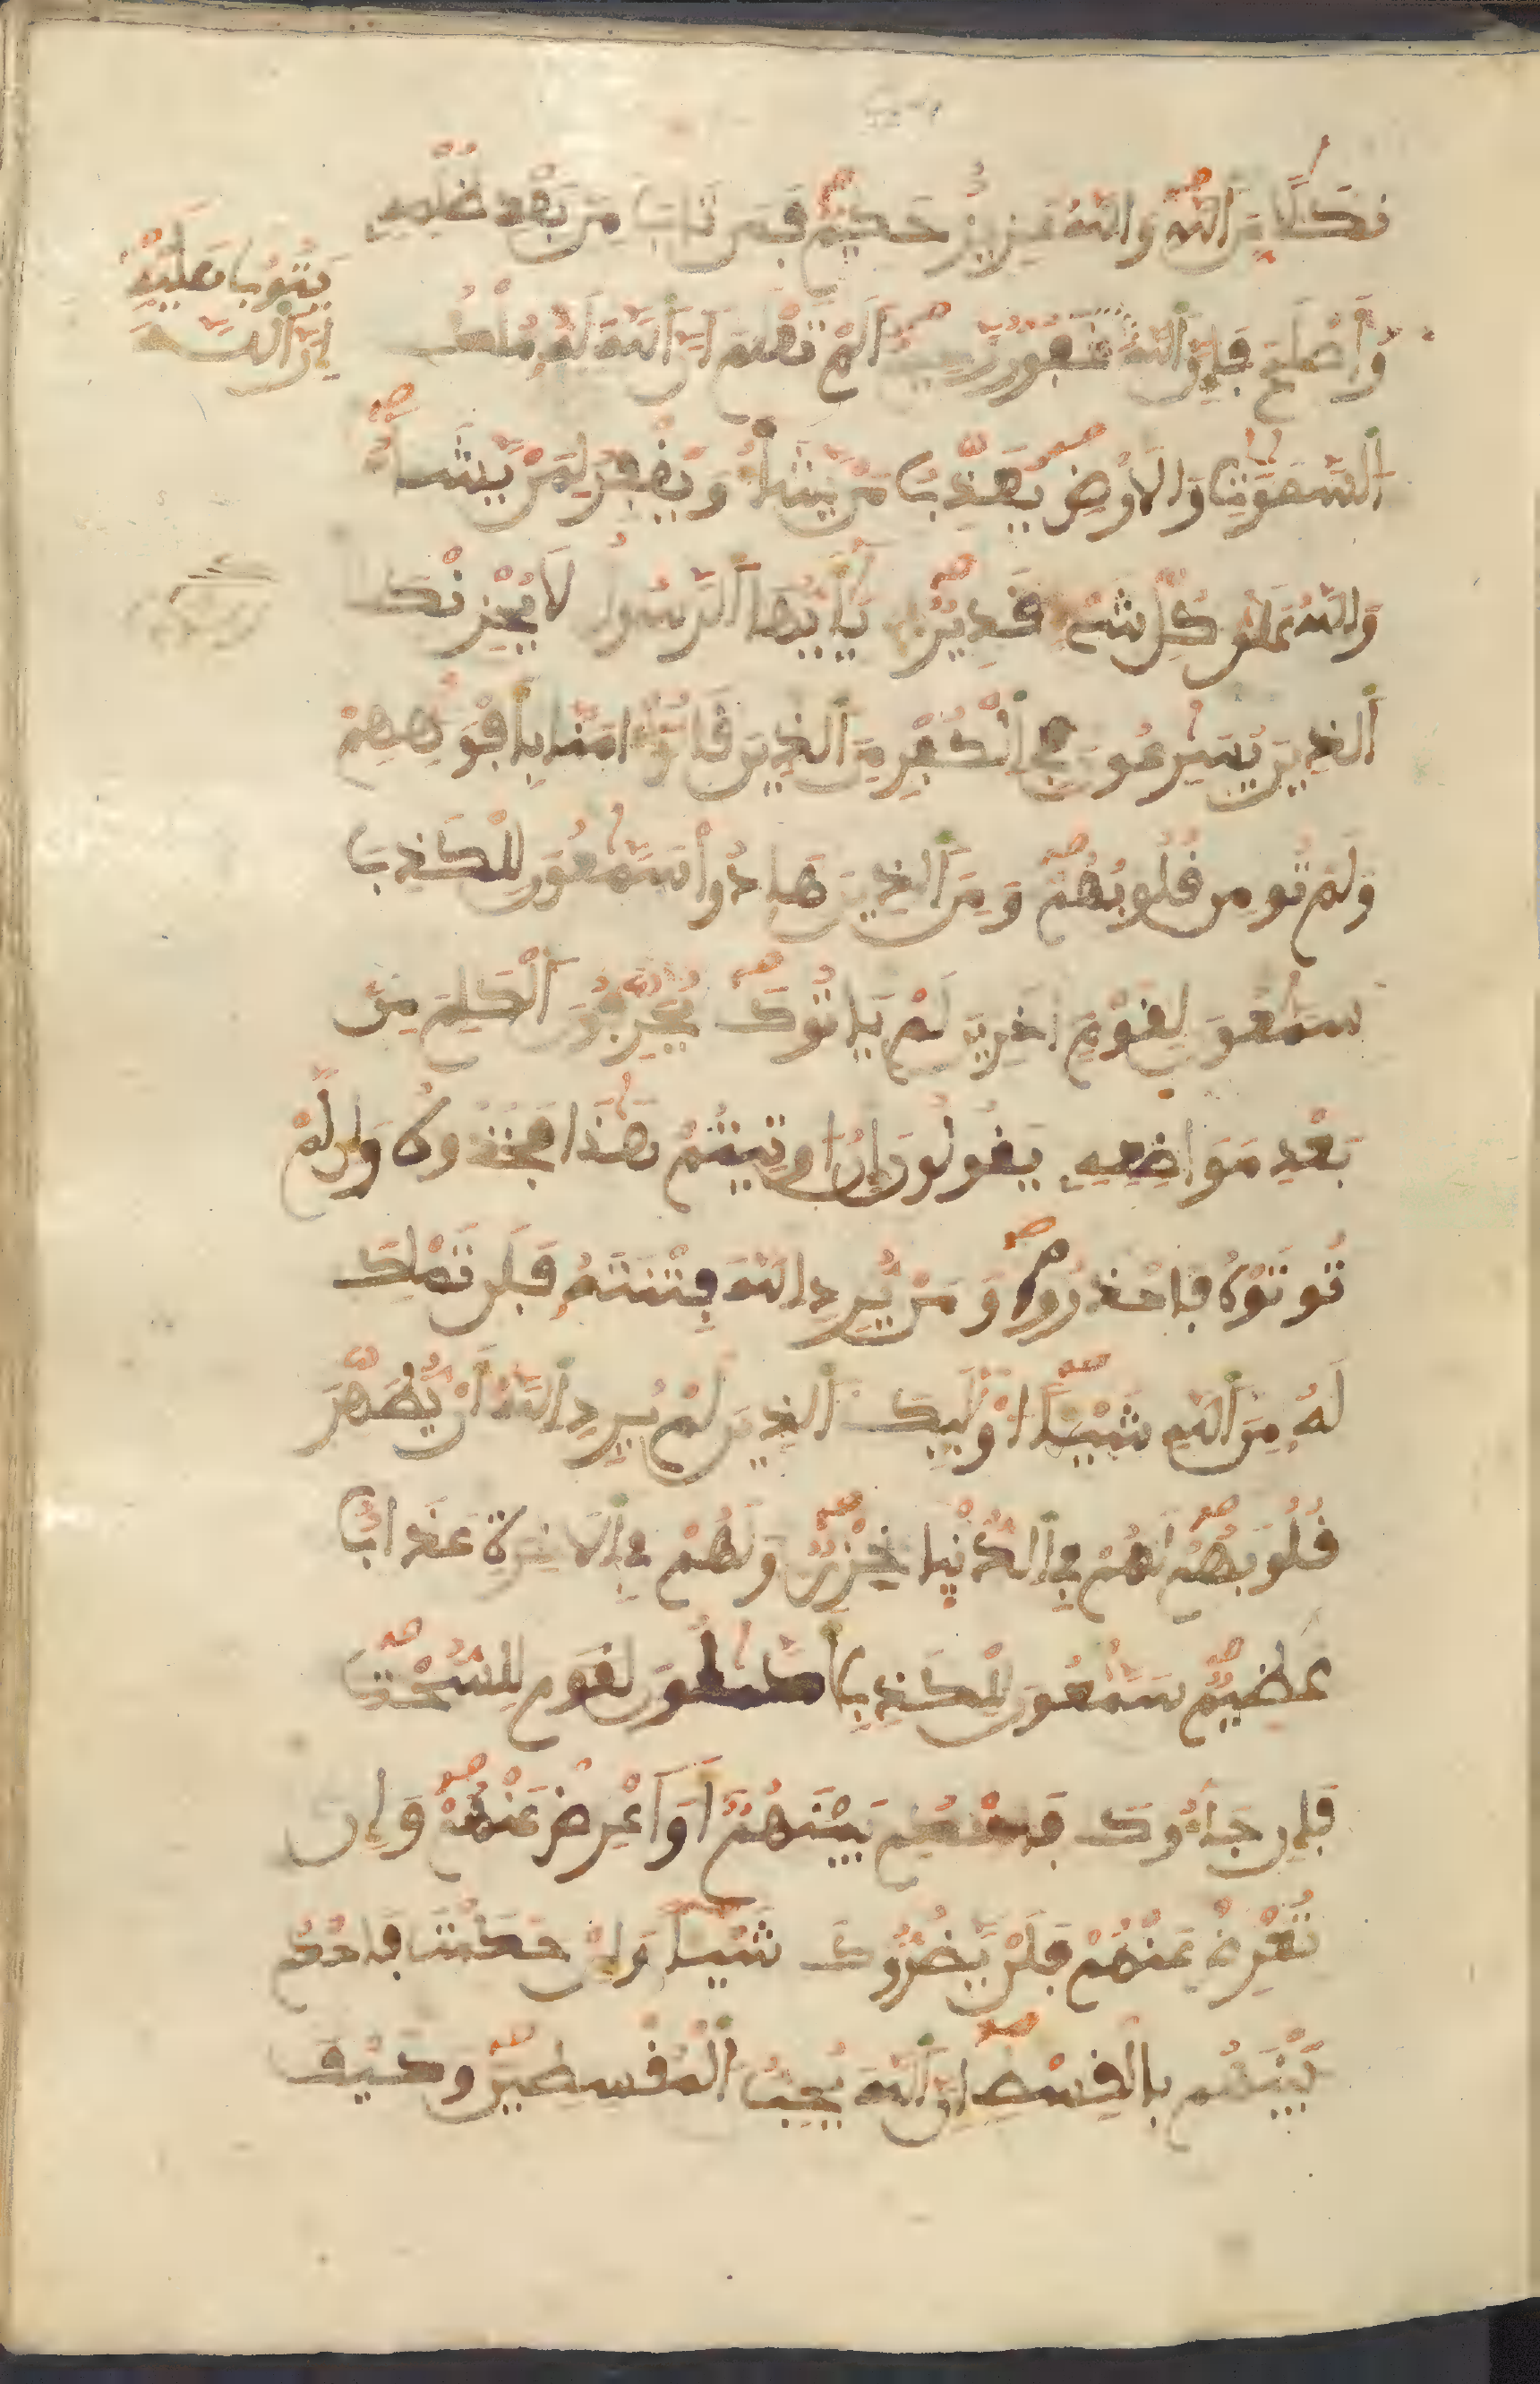 نَكَٰلًا مِّنَ ٱللَّهِ وَٱللَّهُ عَزِيزٌ حَكِيمٌ فَمَن تَابَ مِنۢ بَعْدِ ظُلْمِهِ
وَأَصْلَحَ فَإِنَّ ٱللَّهَ غَفُورٌ رَّحِيمٌ أَلَمْ تَعْلَمَ اَنَّ ٱللَّهَ لَهُ مُلْكُ
يَتُوبُ عَلَيْهِ
إِنَّ ٱللَّهَ
ٱلسَّمَٰوَٰتِ وَالَارْضِ يُعَذِّبُ مَنْ يَّشَآءُ وَيَغْفِرُ لِمَنْ يَّشَآءُ
وَاللَّهُ عَلَىٰ كُلِّ شَيْءٍ قَدِيرٌ يَٰٓأَيُّهَا ٱلرَّسُولُ لَا يُحْزِنْكَ
ٱلذِينَ يُسَٰرِعُونَ فِي ٱلْكُفْرِ مِنَ ٱلذِينَ قَالُوٓا ءَامَنَّا بِأَفْوَٰهِهِمْ
وَلَمْ تُومِن قُلُوبُهُمْ وَمِنَ ٱلذِينَ هَادُوا سَمَّٰعُونَ لِلْكَذِبِ
سَمَّٰعُونَ لِقَوْمٍ اٰخَرِينَ لَمْ يَاتُوكَ يُحَرِّفُونَ ٱلْكَلِمَ مِنۢ
بَعْدِ مَوَاضِعِهِ يَقُولُونَ إِنُ اوتِيتُمْ هَٰذَا فَخُذُوهُ وَإِن لَّمْ
تُوتَوْهُ فَاحْذَرُوا وَمَنْ يُّرِدِ اللَّهُ فِتْنَتَهُ فَلَن تَمْلِكَ
لَهُ مِنَ ٱللَّهِ شَيْـًٔا اوْلَٰٓئِكَ ٱلذِينَ لَمْ يُرِدِ ٱللَّهُ أَنْ يُّطَهِّرَ
قُلُوبَهُمْ لَهُمْ فِي ٱلدُّنْيَا خِزْيٌ وَلَهُمْ فِي ٱلَاخِرَةِ عَذَابٌ
عَظِيمٌ سَمَّٰعُونَ لِلْكَذِبِ أَكَّٰلُونَ لِلسُّحْتِ
فَإِن جَآءُوكَ فَاحْكُم بَيْنَهُمُ أَوَ اَعْرِضْ عَنْهُمْ وَإِن
تُعْرِضْ عَنْهُمْ فَلَنْ يَّضُرُّوكَ شَيْـًٔا وَإِنْ حَكَمْتَ فَاحْكُم
بَيْنَهُم بِالْقِسْطِ إِنَّ ٱللَّهَ يُحِبُّ ٱلْمُقْسِطِينَ وَكَيْفَ